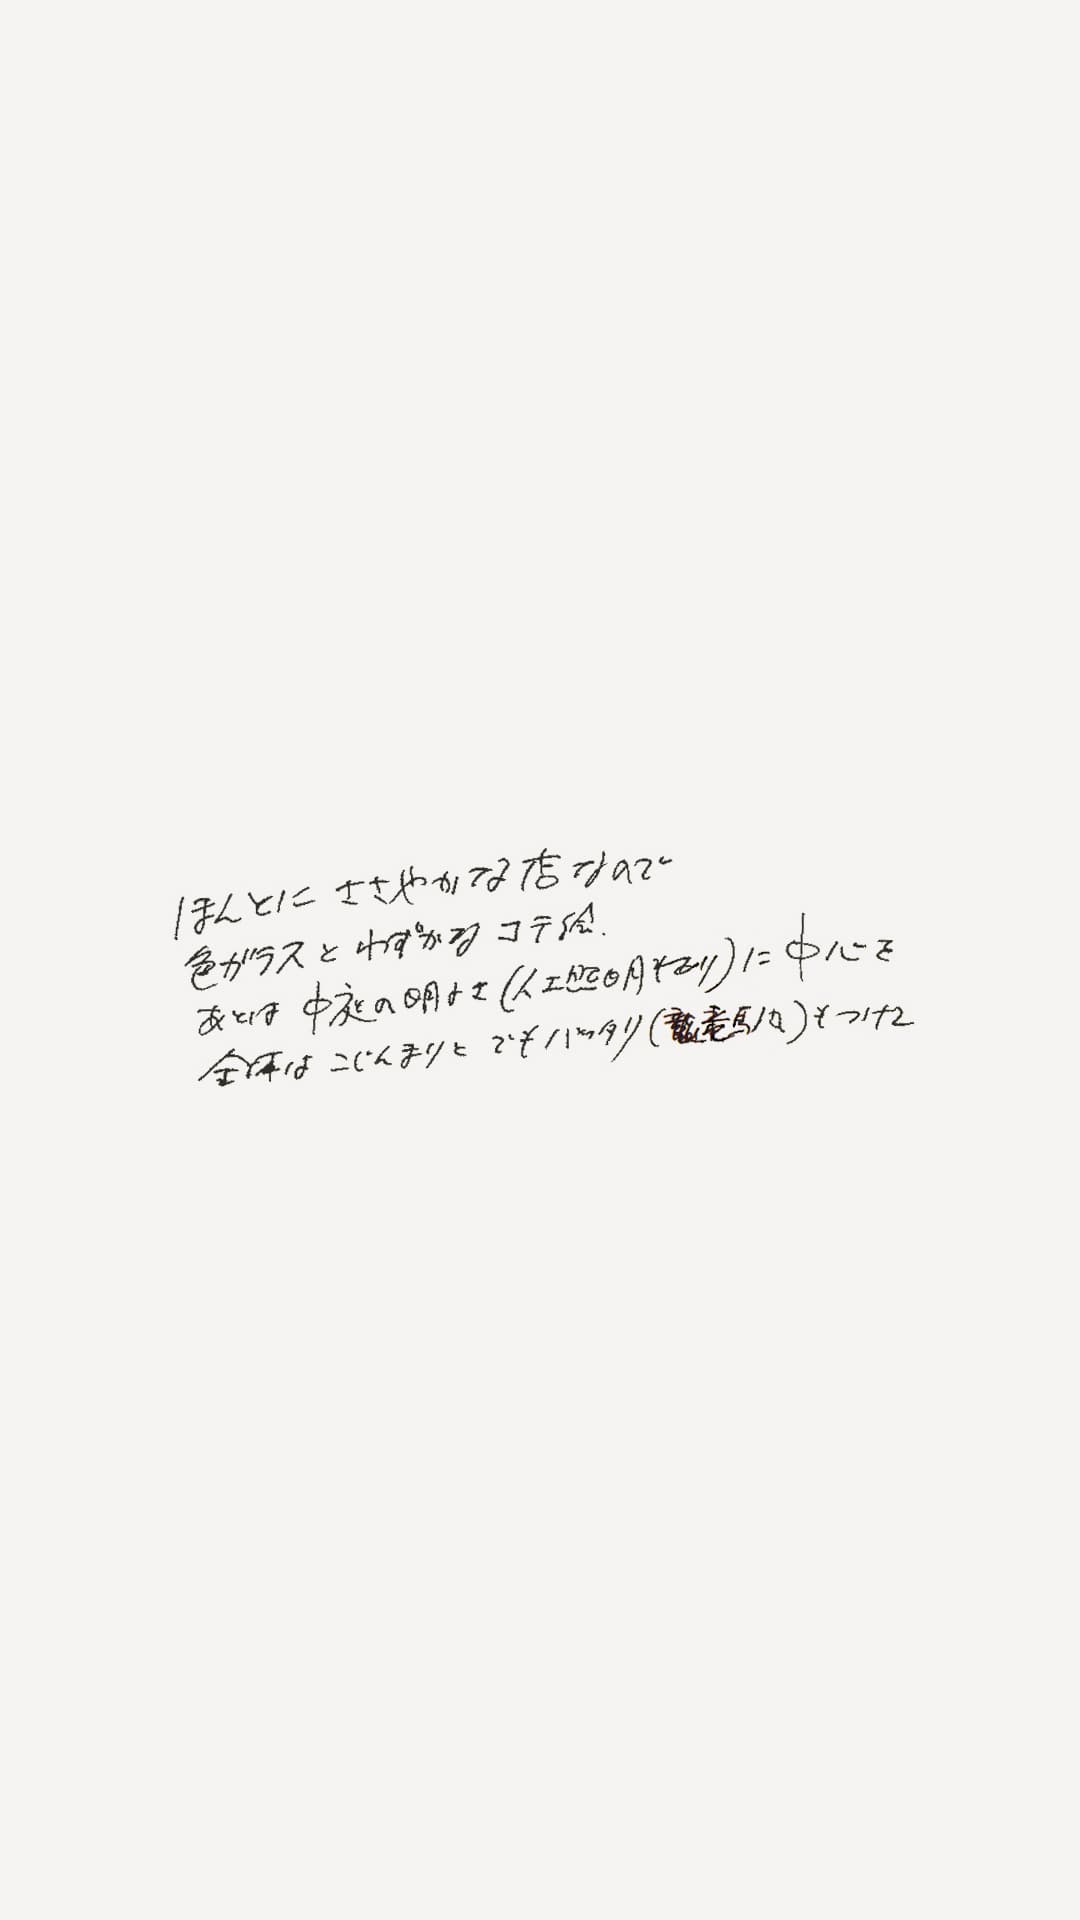 ほんとに ささやかな店なので
色ガラスと わずかな コテ絵.
あとは 中庭の明よさ (人工照明もあり) に 中心を
全体は こじんまりと でもバッタリ ( 馬 ) もつけて